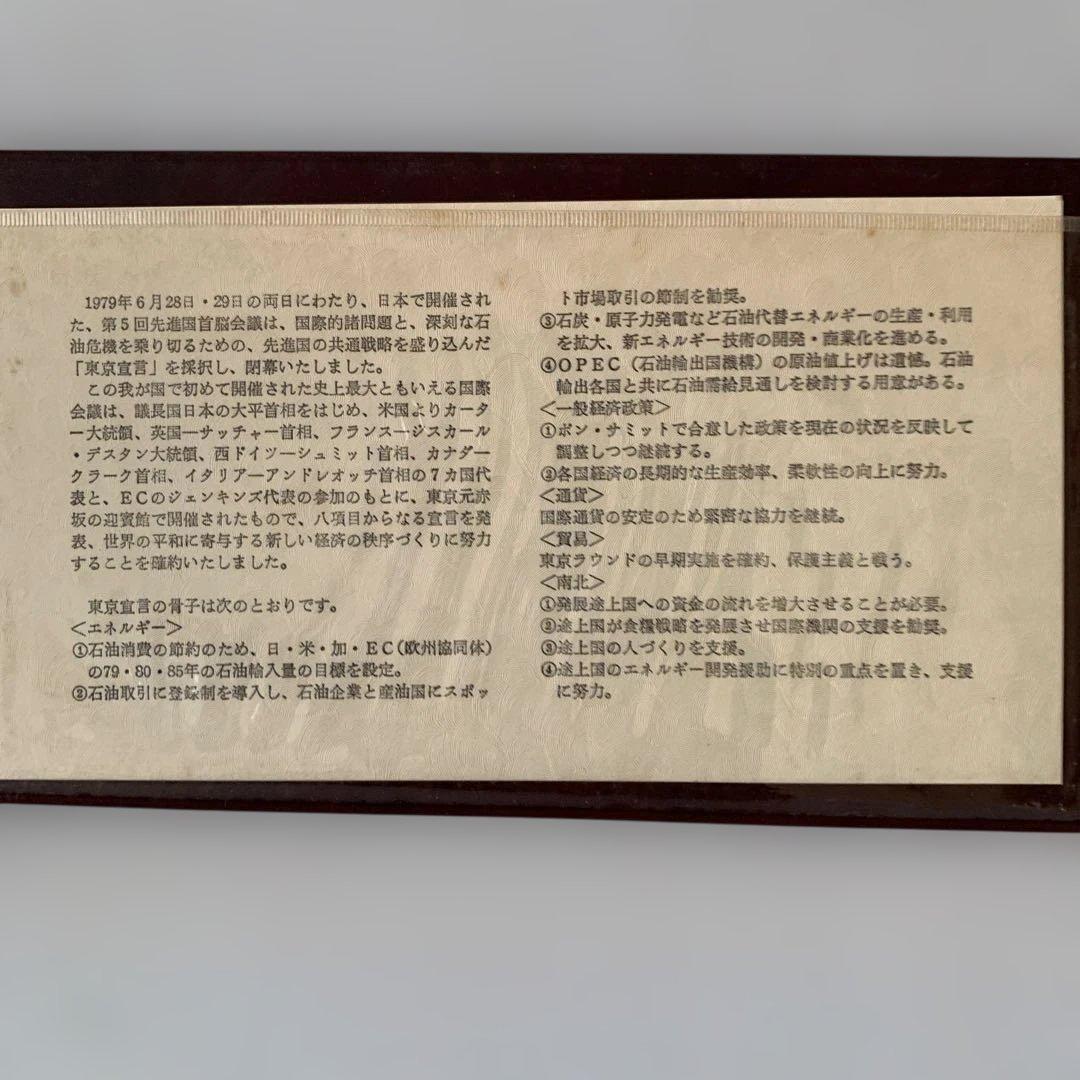 1979年6月28日・29日の両日にわたり、日本で開催され
た、第5回先進国首脳会議は、国際的諸問題と、深刻な石
油危機を乗り切るための、先進国の共通戦略を盛り込んだ
「東京宣言」を採択し、閉幕いたしました。
この我が国で初めて開催された史上最大ともいえる国際
会議は、議長国日本の大平首相をはじめ、米国よりカータ
ー大統領、英国―サッチャー首相、フランス―ジスカール
・デスタン大統領、西ドイツ―シュミット首相、カナダ―
クラーク首相、イタリア―アンドレオッチ首相の7カ国代
表と、ECのジェンキンズ代表の参加のもとに、東京元赤
坂の迎賓館で開催されたもので、八項目からなる宣言を発
表、世界の平和に寄与する新しい経済の秩序づくりに努力
することを確約いたしました。
東京宣言の骨子は次のとおりです。
<エネルギー>
①石油消費の節約のため、日・米・加・EC(欧州協同体)
の79・80・85年の石油輸入量の目標を設定。
②石油取引に登録制を導入し、石油企業と産油国にスポッ
ト市場取引の節制を勧奨。
③石炭・原子力発電など石油代替エネルギーの生産・利用
を拡大、新エネルギー技術の開発・商業化を進める。
④OPEC(石油輸出国機構)の原油値上げは遺憾。石油
輸出各国と共に石油需給見通しを検討する用意がある。
<一般経済政策>
①ボン・サミットで合意した政策を現在の状況を反映して
調整しつつ継続する。
②各国経済の長期的な生産効率、柔軟性の向上に努力。
<通貨>
国際通貨の安定のため緊密な協力を継続。
<貿易>
東京ラウンドの早期実施を確約、保護主義と戦う。
<南北>
①発展途上国への資金の流れを増大させることが必要。
②途上国が食糧戦略を発展させ国際機関の支援を勧奨。
③途上国の人づくりを支援。
④途上国のエネルギー開発援助に特別の重点を置き、支援
に努力。